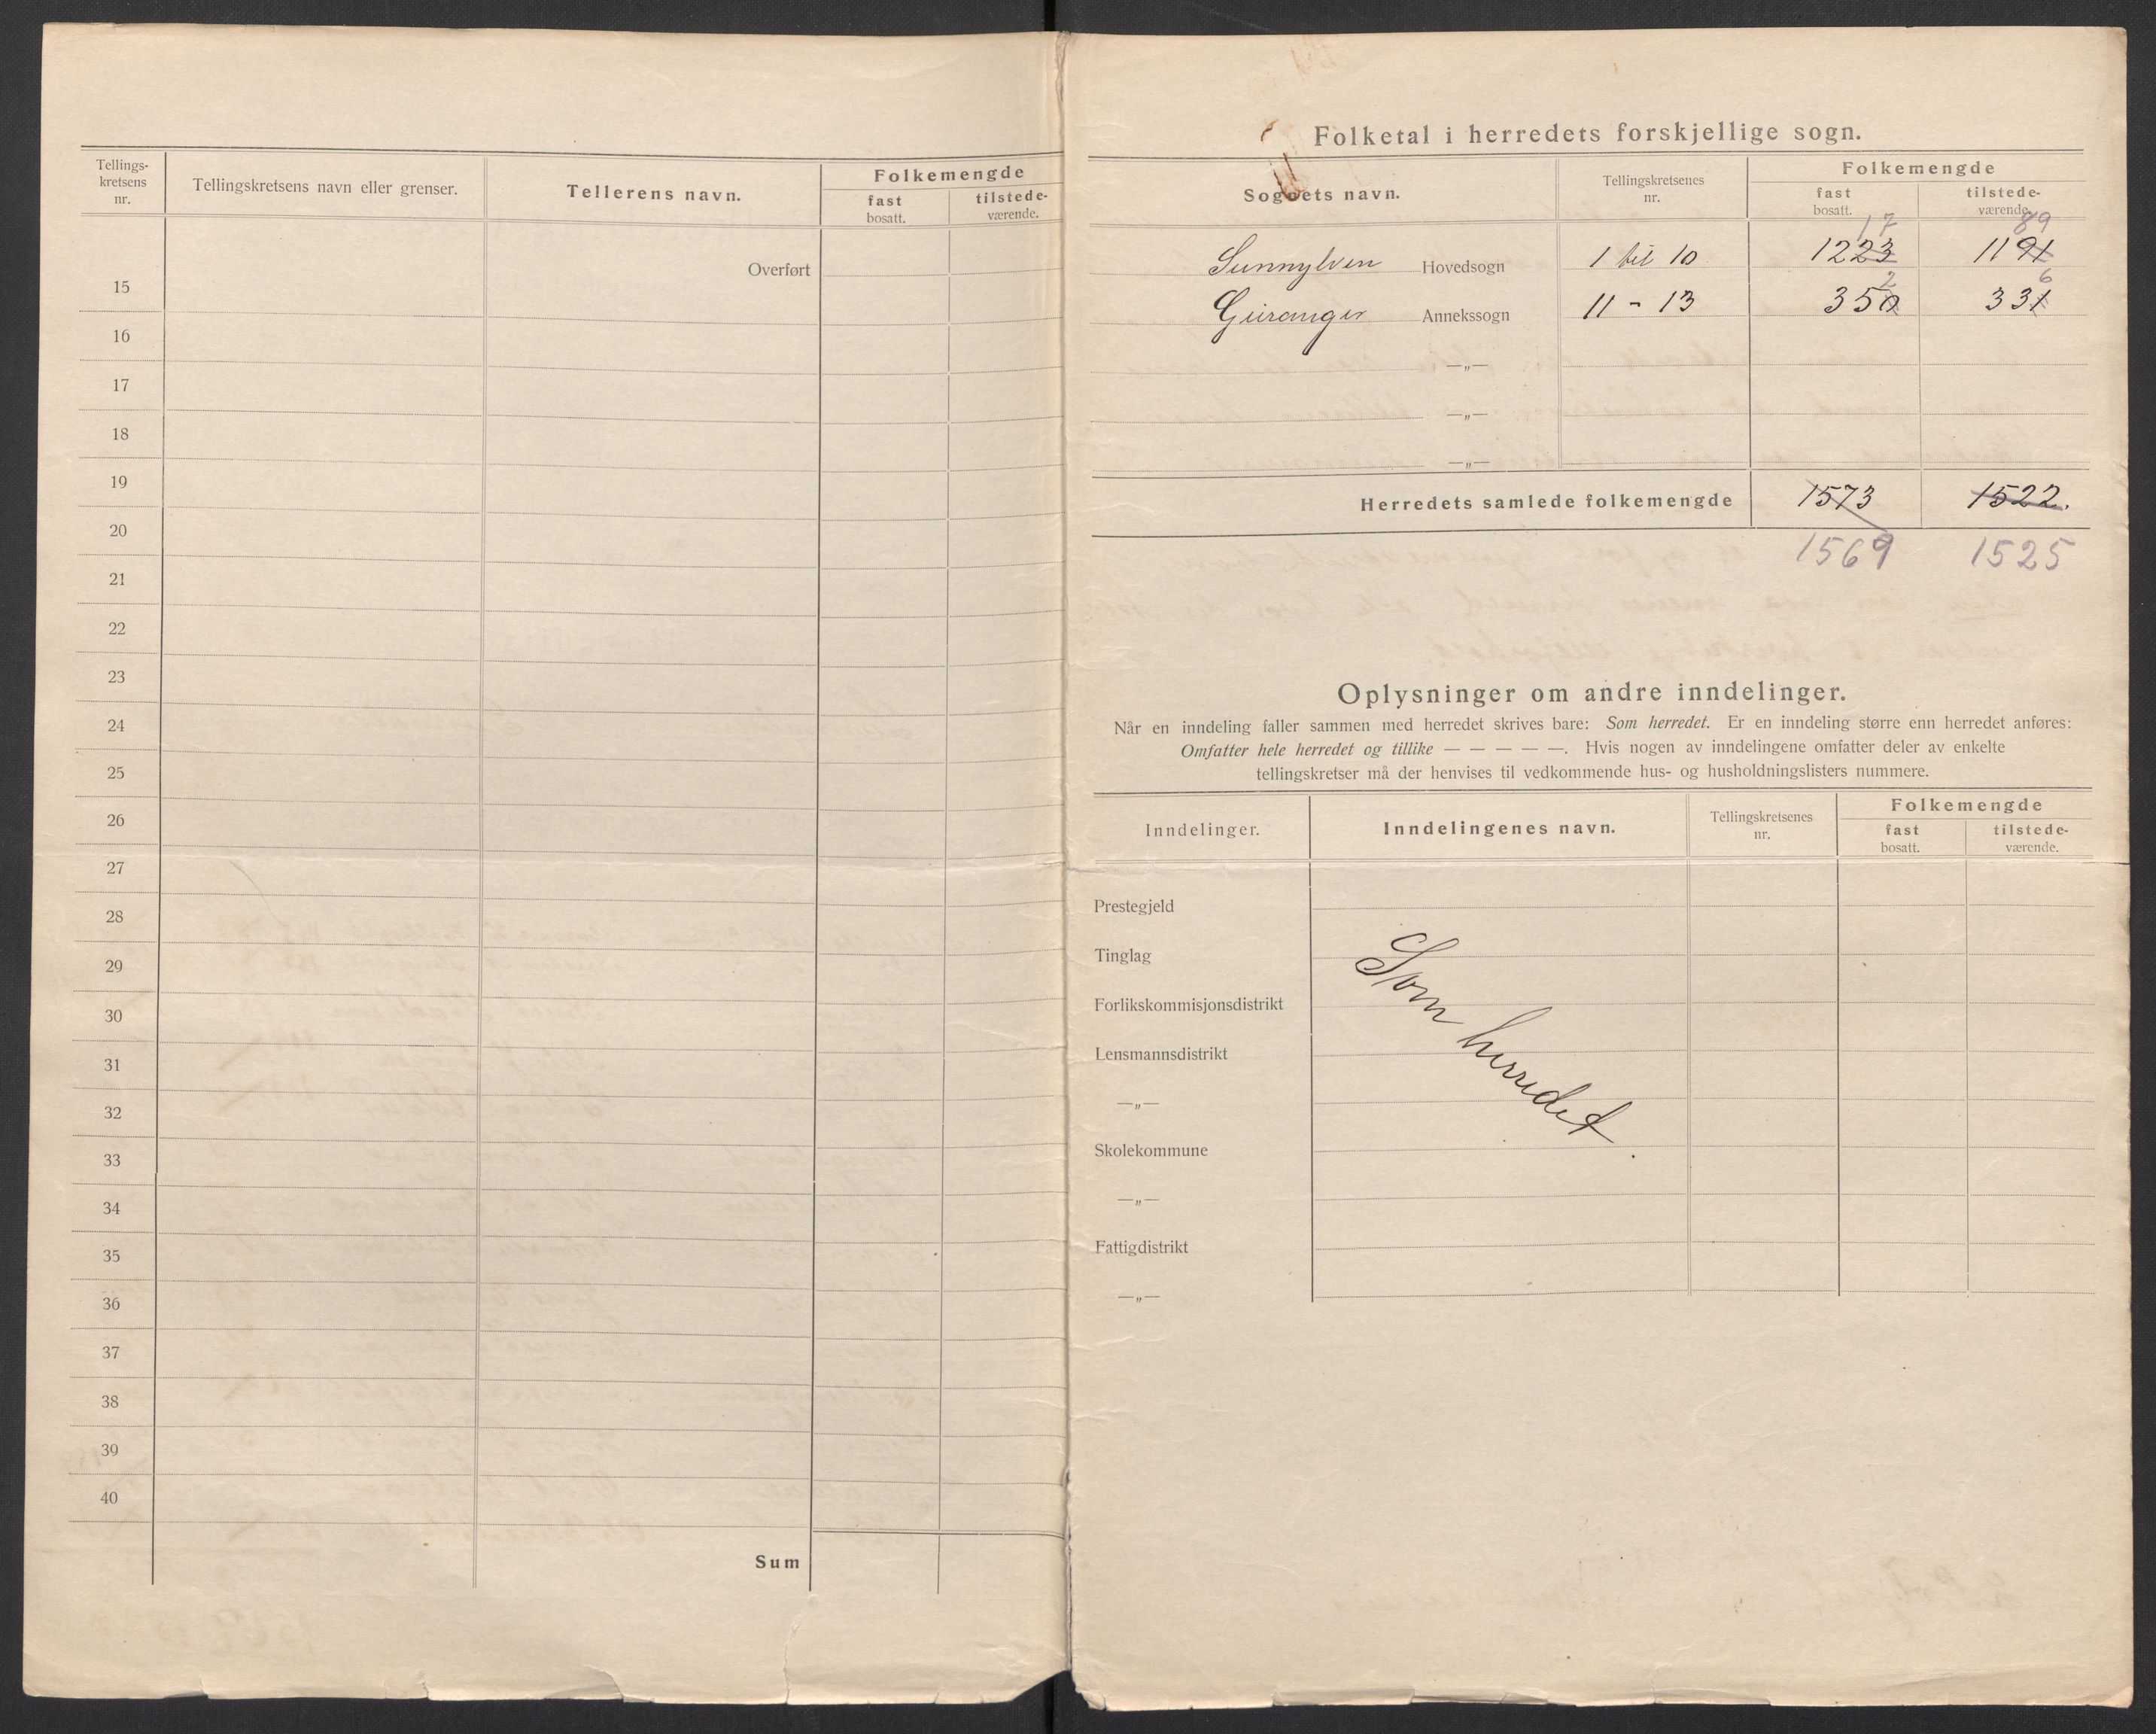 Tellings-
kretsens
nr.
Tellingskretsens navn eller grenser.
Tellerens navn.
Folkemengde
fast
bosatt.
tilstede-
værende.
Overført
15
16
17
18
19
20
21
22
23
24
25
26
27
28
29
30
31
32
33
34
35
36
37
38
39
40
Sum
Folketal i herredets forskjellige sogn.
Sognets navn.
Tellingskretsenes
nr.
Folkemengde
fast
bosatt.
tilstede-
værende.
17 89
Sunnylven Hovedsogn 1 til 10 1223 1191
2 6
Geiranger Annekssogn 11 - 13 350 331
—„—
—„—
—„—
Herredets samlede folkemengde 1573 1522.
1569 1525
Oplysninger om andre inndelinger.
Når en inndeling faller sammen med herredet skrives bare: Som herredet. Er en inndeling større enn herredet anføres:
Omfatter hele herredet og tillike — — — — —. Hvis nogen av inndelingene omfatter deler av enkelte
tellingskretser må der henvises til vedkommende hus- og husholdningslisters nummere.
Inndelinger.
Inndelingenes navn.
Tellingskretsenes
nr.
Folkemengde
fast
bosatt.
tilstede-
værende.
Prestegjeld
Tinglag
Forlikskommisjonsdistrikt
Lensmannsdistrikt
—„—
Skolekommune
—„—
Fattigdistrikt
—„—
Som herredet.